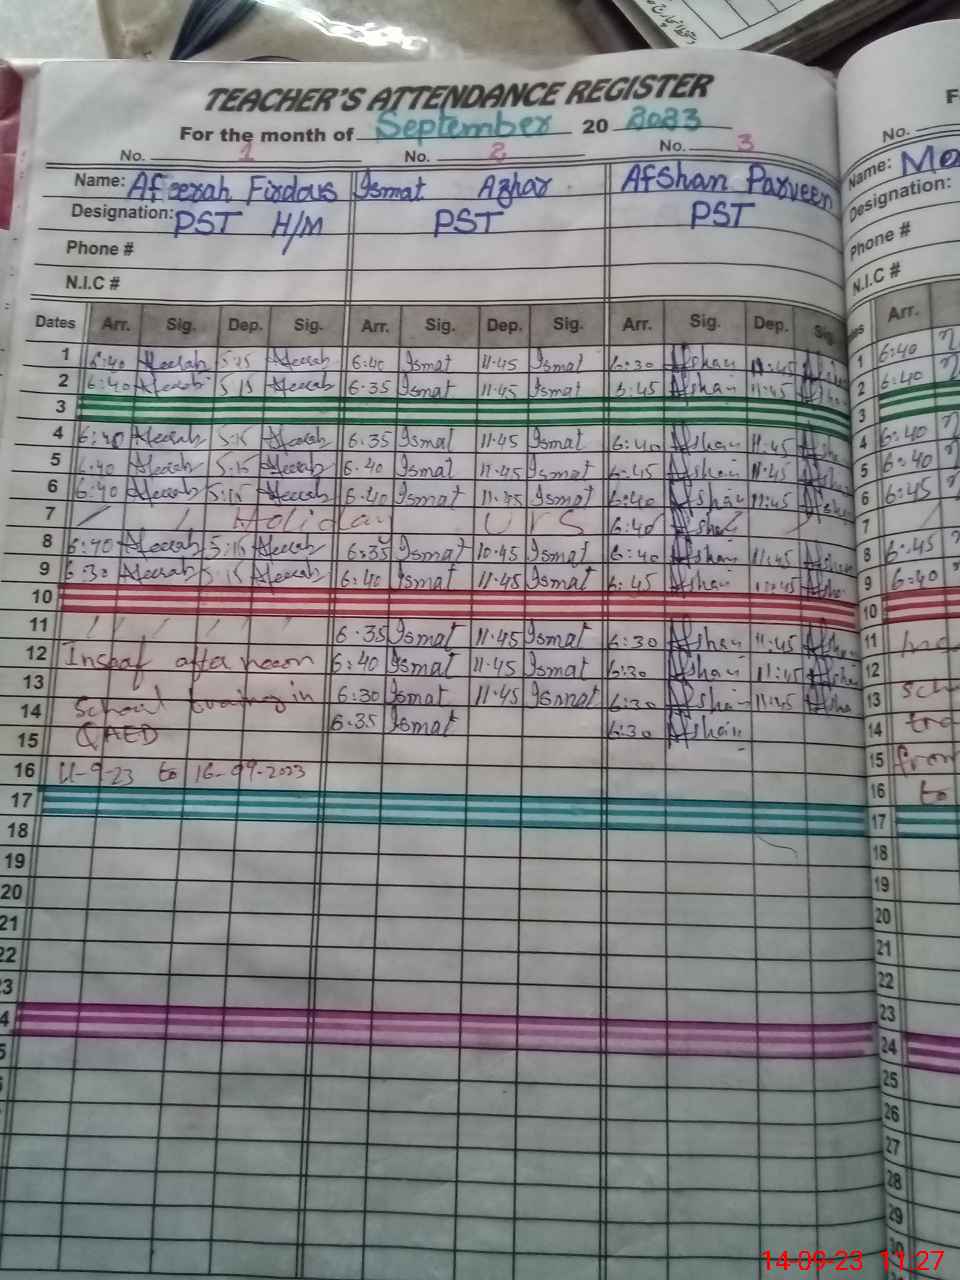 TEACHER'S ATTENDANCE REGISTER
For the month of September 20 2023
No. 1 No. 2 No. 3
Name: Afeerah Firdous Ismat Azhar Afshan Parveen
Designation: PST H/M PST PST
Phone #
N.I.C #
Dates Arr. Sig. Dep. Sig. Arr. Sig. Dep. Sig. Arr. Sig. Dep. Sig.
1 6:40 Afeerah 5:15 Afeerah 6:40 Ismat 11.45 Ismat 6:30 Afshan 11:45 Afshan
2 6:40 Afeerah 5:15 Afeerah 6.35 Ismat 11.45 Ismat 6:45 Afshan 11:45 Afshan
3
4 6:40 Afeerah 5:15 Afeerah 6.35 Ismat 11.45 Ismat 6:40 Afshan 11:45 Afshan
5 6:40 Afeerah 5:15 Afeerah 6.40 Ismat 11.45 Ismat 6:45 Afshan 11:45 Afshan
6 6:40 Afeerah 5:15 Afeerah 6.40 Ismat 11.45 Ismat 6:40 Afshan 11:45 Afshan
7 Holiday Urs 6:40 Afshan
8 6:40 Afeerah 5:15 Afeerah 6:35 Ismat 10.45 Ismat 6:40 Afshan 11:45 Afshan
9 6:30 Afeerah 5:15 Afeerah 6:40 Ismat 11.45 Ismat 6:45 Afshan 11:45 Afshan
10
11 6.35 Ismat 11.45 Ismat 6:30 Afshan 11:45 Afshan
12 Insaaf after noon 6:40 Ismat 11.45 Ismat 6:30 Afshan 11:45 Afshan
13 School training in 6:30 Ismat 11.45 Ismat 6:30 Afshan 11:45 Afshan
14 QAED 6.35 Ismat 6:30 Afshan
15
16 11-9-23 to 16-09-2023
17
18
19
20
21
22
23
24
No.
Name:
Designation:
Phone #
N.I.C #
Arr.
1 6:40
2 6:40
3
4 6:40
5 6:40
6 6:45
7
8 6:45
9 6:40
10
11
12
13
14
15 from
16 to
17
18
19
20
21
22
23
24
25
26
27
28
29
30
14-09-23 11:27